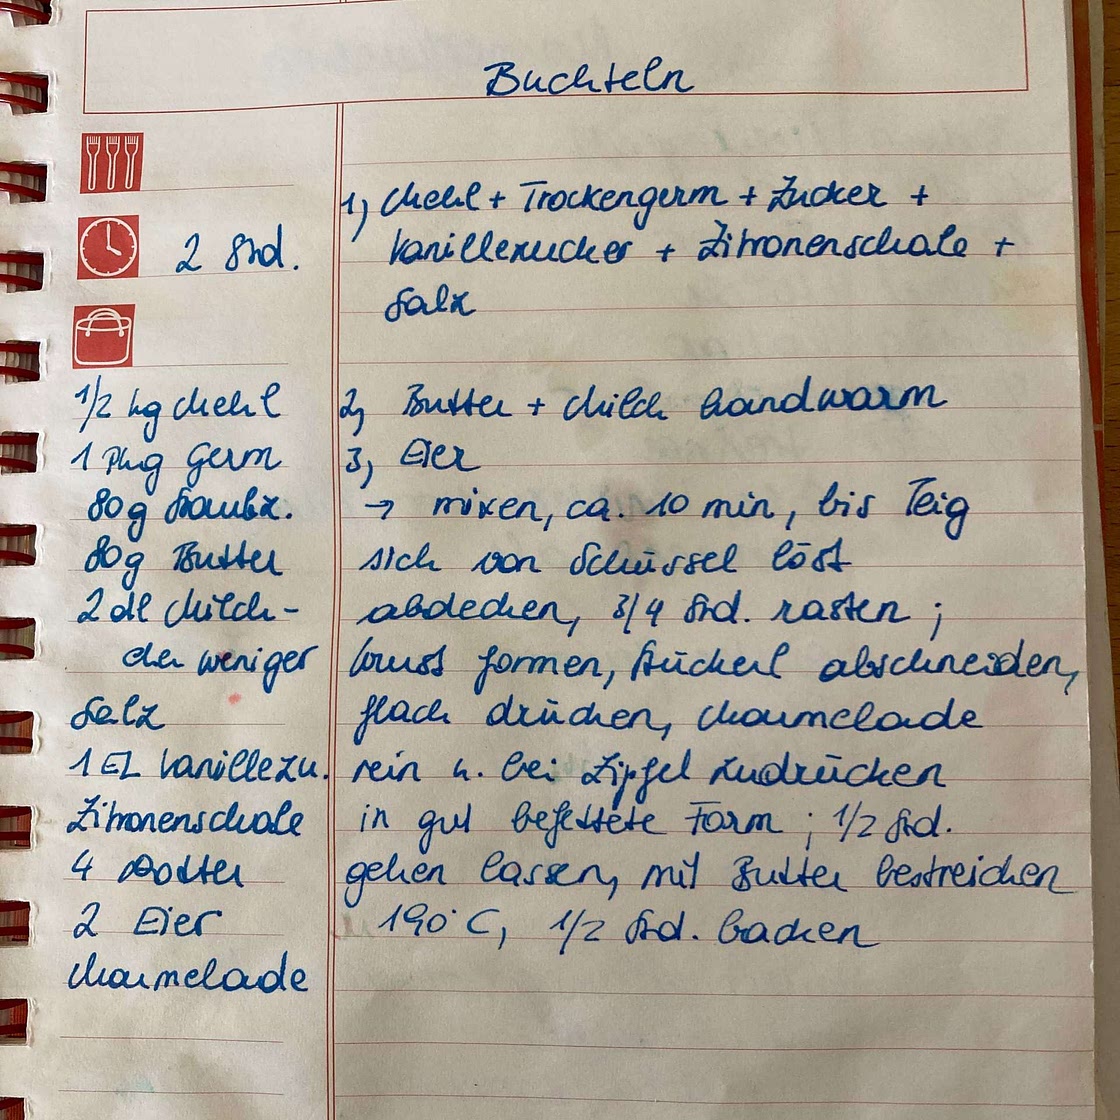 Buchteln
2 Std.
1/2 kg Mehl
1 Pkg Germ
80g Staubz.
80g Butter
2 dl Milch -
eher weniger
Salz
1 EL Vanillezu.
Zitronenschale
4 Dotter
2 Eier
Marmelade
1, Mehl + Trockengerm + Zucker +
Vanillezucker + Zitronenschale +
Salz
2, Butter + Milch handwarm
3, Eier
→ mixen, ca. 10 min, bis Teig
sich von Schüssel löst
abdecken, 3/4 Std. rasten ;
Wurst formen, Stückerl abschneiden,
flach drücken, Marmelade
rein u. bei Zipfel zudrücken
in gut befettete Form ; 1/2 Std.
gehen lassen, mit Butter bestreichen
190°C, 1/2 Std. backen